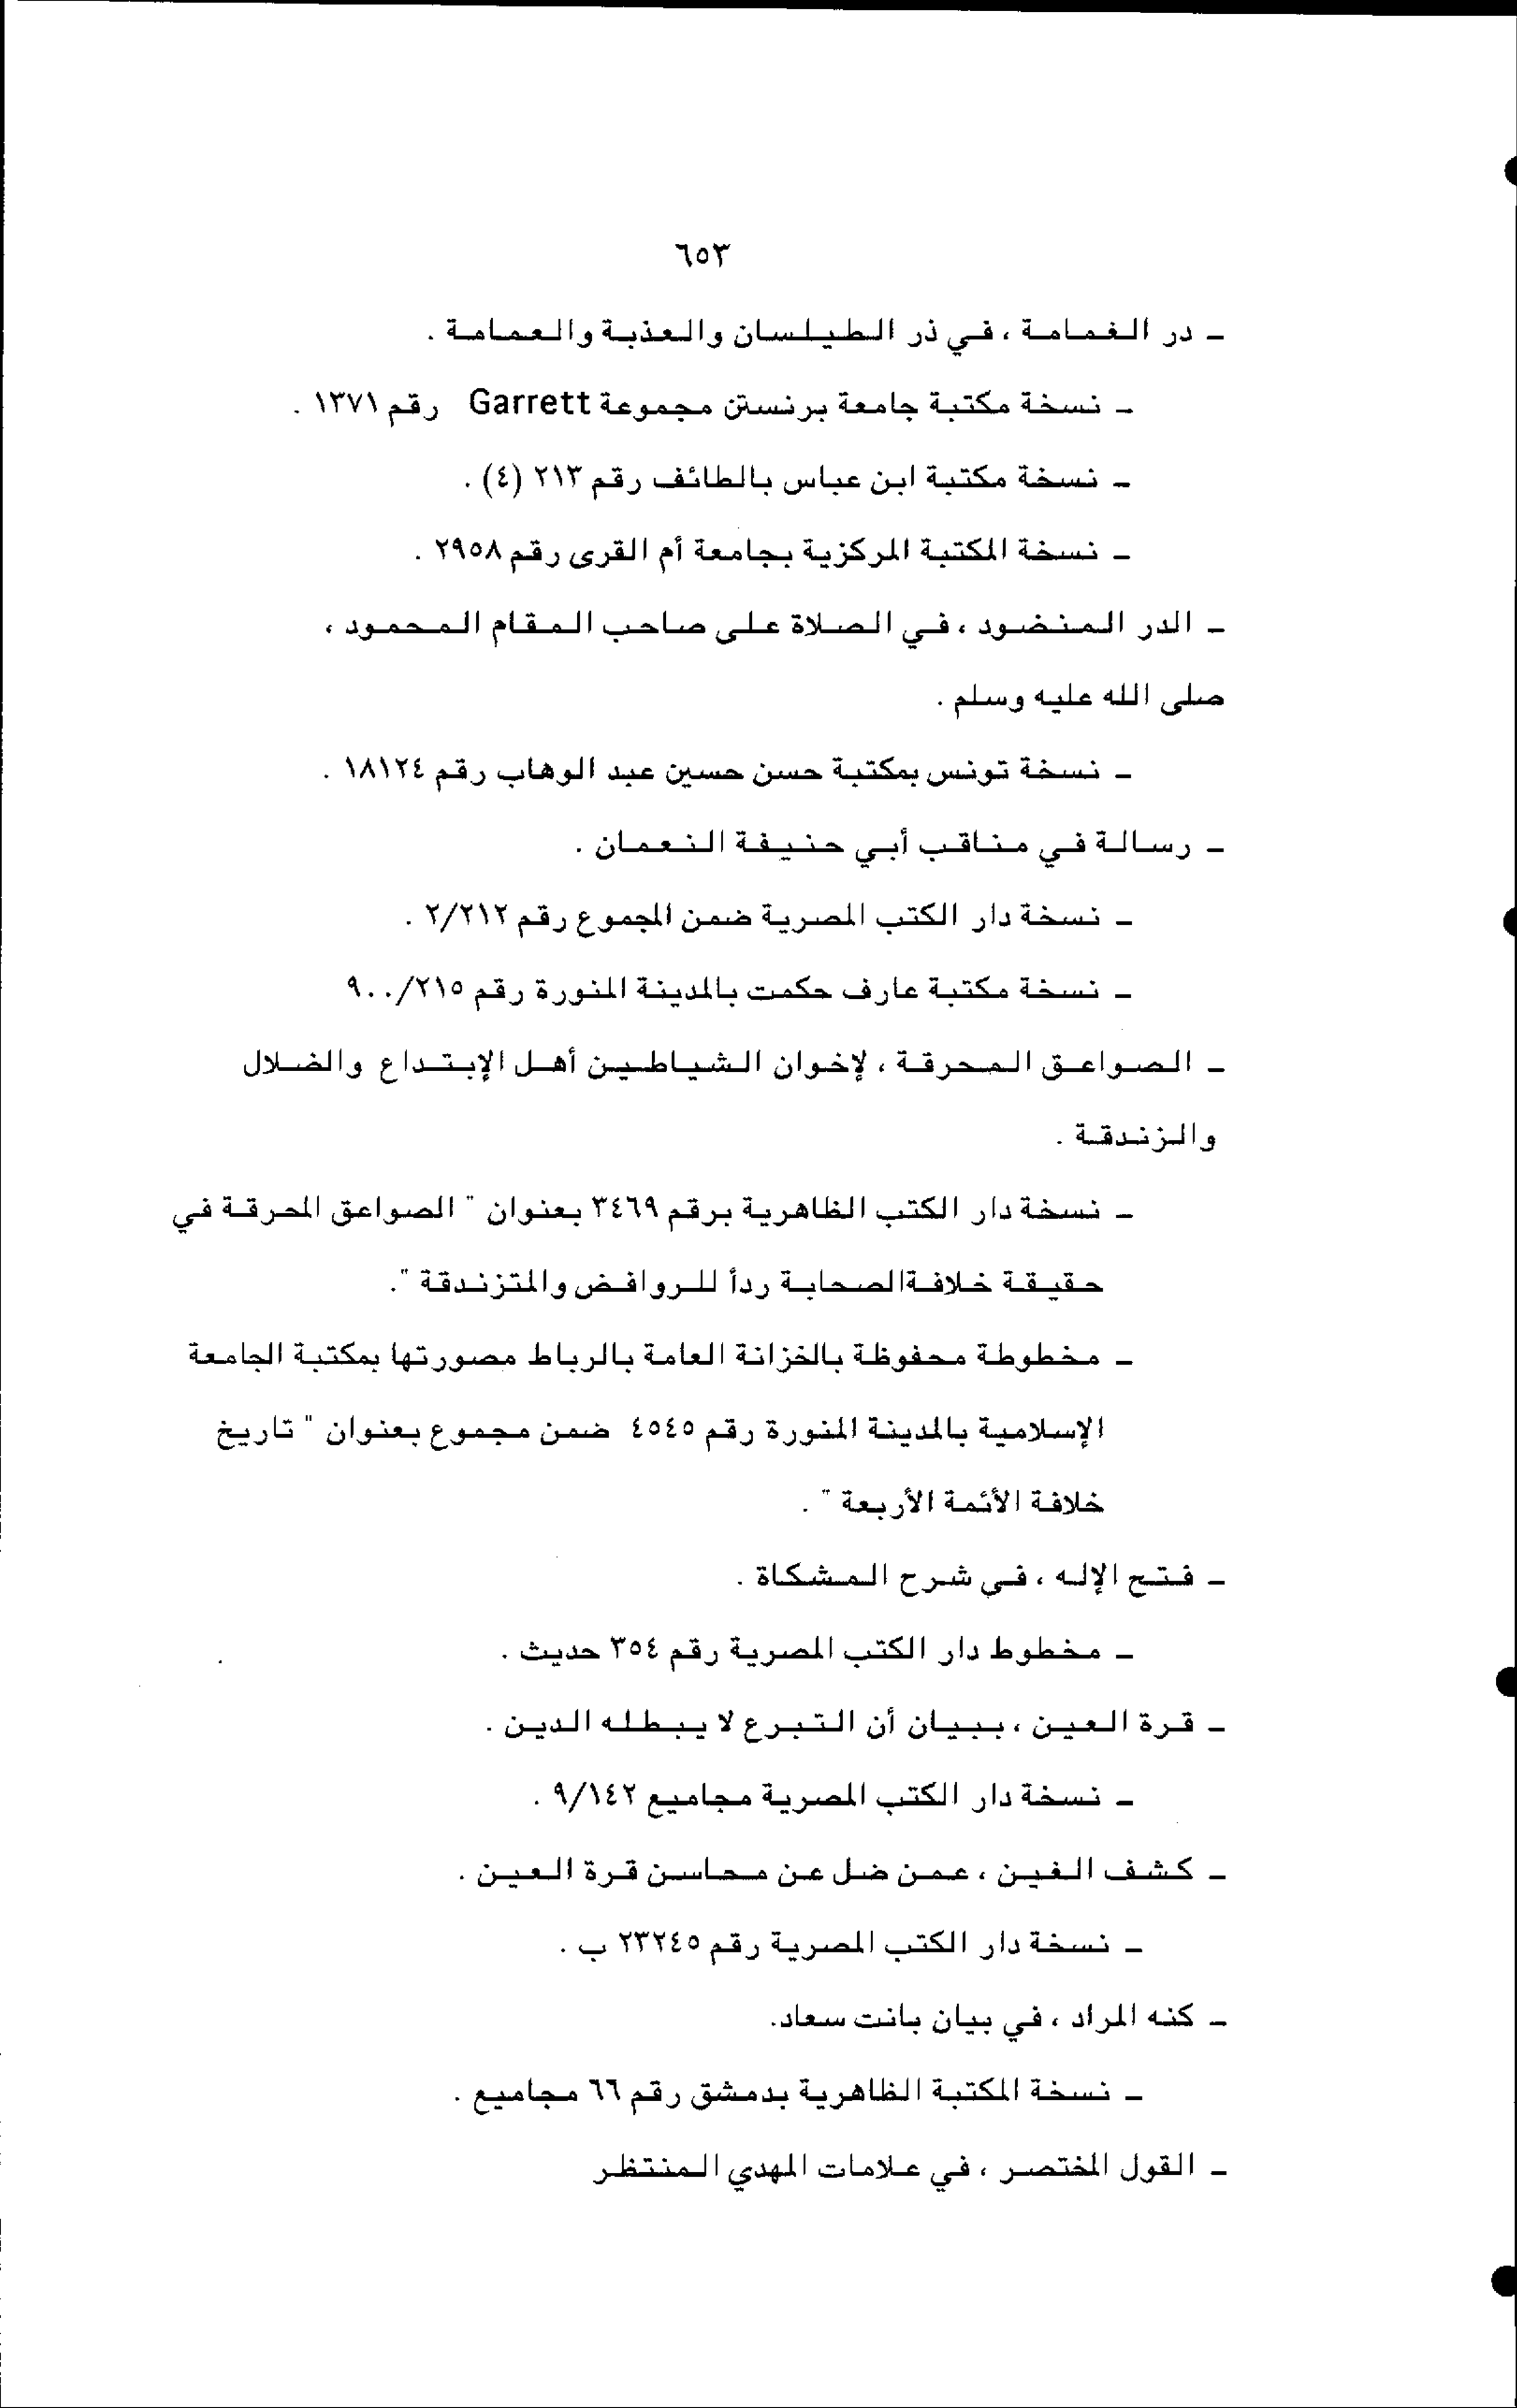 ٦٥٣
ـ در الغمامة ، في ذر الطيلسان والعذبة والعمامة .
ـ نسخة مكتبة جامعة برنستن مجموعة Garrett رقم ١٣٧١ .
ـ نسخة مكتبة ابن عباس بالطائف رقم ٢١٣ (٤) .
ـ نسخة المكتبة المركزية بجامعة أم القرى رقم ٢٩٥٨ .
ـ الدر المنضود ، في الصلاة على صاحب المقام المحمود ،
صلى الله عليه وسلم .
ـ نسخة تونس بمكتبة حسن حسين عبد الوهاب رقم ١٨١٢٤ .
ـ رسالة في مناقب أبي حنيفة النعمان .
ـ نسخة دار الكتب المصرية ضمن المجموع رقم ٢/٢١٢ .
ـ نسخة مكتبة عارف حكمت بالمدينة المنورة رقم ٩٠٠/٢١٥
ـ الصواعق المحرقة ، لإخوان الشياطين أهل الإبتداع والضلال
والزندقة .
ـ نسخة دار الكتب الظاهرية برقم ٣٤٦٩ بعنوان " الصواعق المحرقة في
حقيقة خلافةالصحابة ردأ للروافض والمتزندقة ".
ـ مخطوطة محفوظة بالخزانة العامة بالرباط مصورتها بمكتبة الجامعة
الإسلامية بالمدينة المنورة رقم ٤٥٤٥ ضمن مجموع بعنوان " تاريخ
خلافة الأئمة الأربعة " .
ـ فتح الإله ، في شرح المشكاة .
ـ مخطوط دار الكتب المصرية رقم ٣٥٤ حديث .
ـ قرة العين ، ببيان أن التبرع لا يبطله الدين .
ـ نسخة دار الكتب المصرية مجاميع ٩/١٤٢ .
ـ كشف الغين ، عمن ضل عن محاسن قرة العين .
ـ نسخة دار الكتب المصرية رقم ٢٣٢٤٥ ب .
ـ كنه المراد ، في بيان بانت سعاد.
ـ نسخة المكتبة الظاهرية بدمشق رقم ٦٦ مجاميع .
ـ القول المختصر ، في علامات المهدي المنتظر